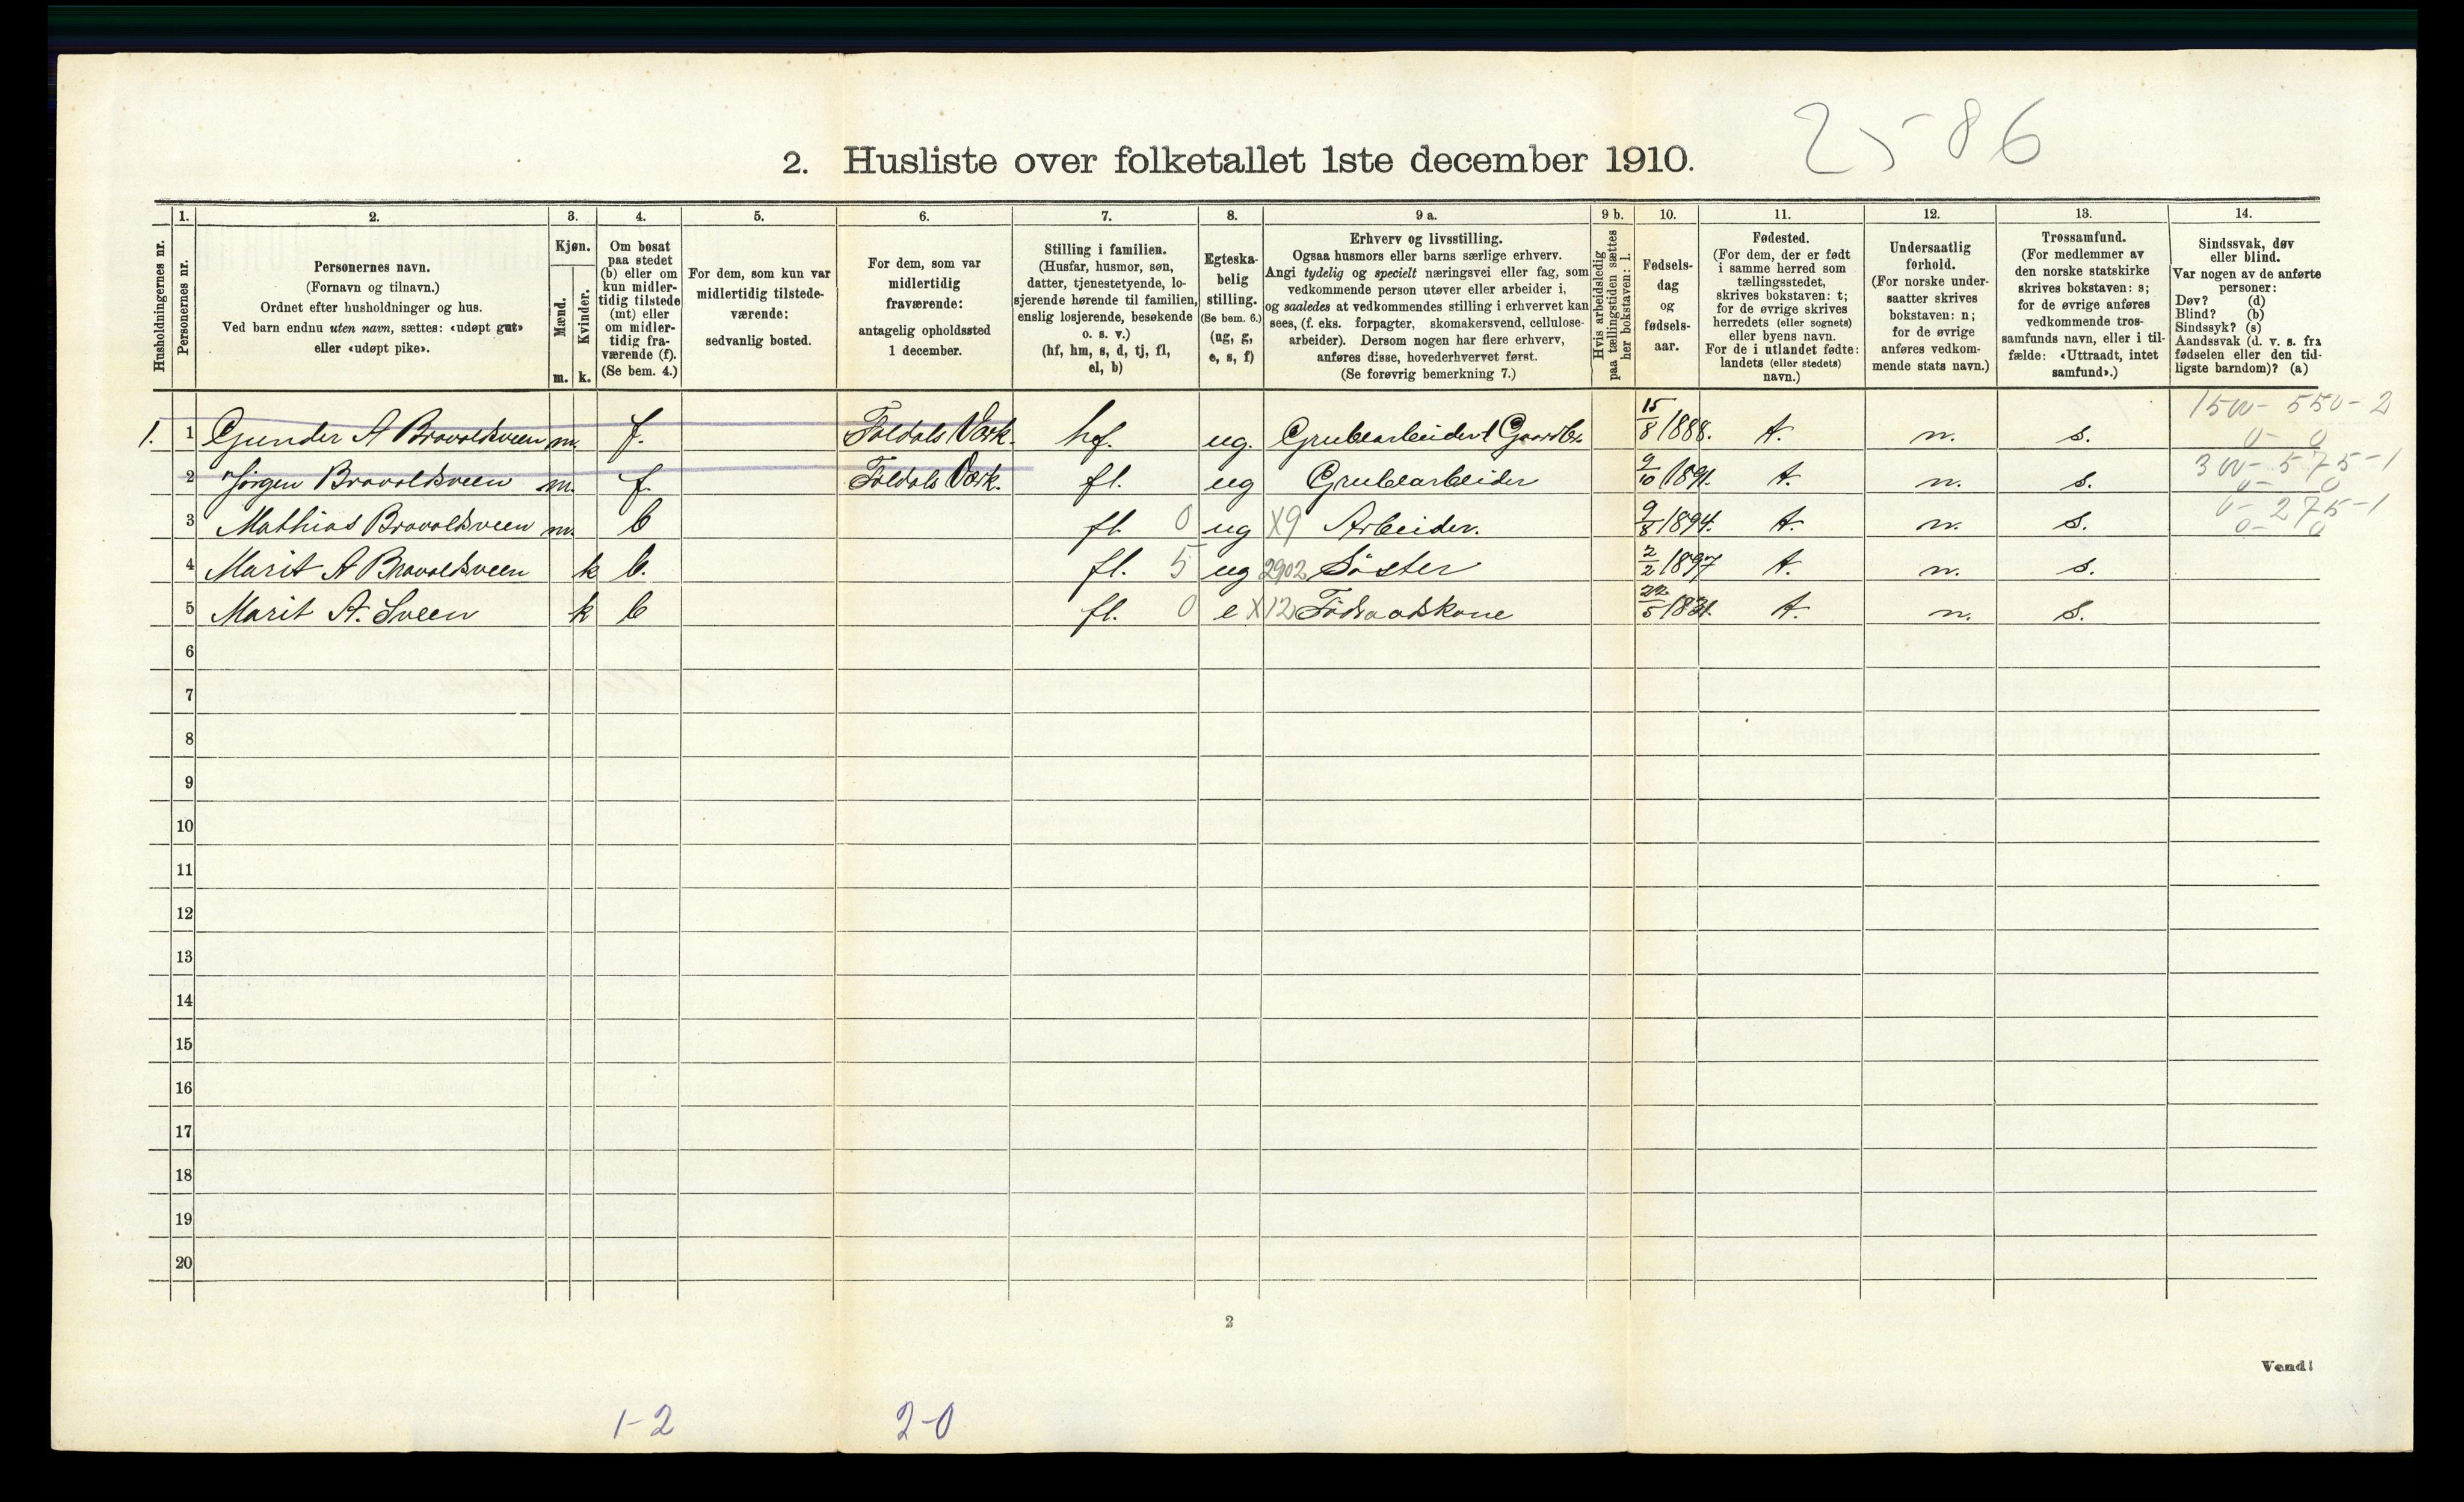 25 86
2. Husliste over folketallet 1ste december 1910.
Husholdningernes nr.
1.
Personernes nr.
2.
Personernes navn.
(Fornavn og tilnavn.)
Ordnet efter husholdninger og hus.
Ved barn endnu uten navn, sættes: «udøpt gut»
eller «udøpt pike».
3.
Kjøn.
Mænd.
Kvinder.
m. k.
4.
Om bosat
paa stedet
(b) eller om
kun midler-
tidig tilstede
(mt) eller
om midler-
tidig fra-
værende (f).
(Se bem. 4.)
5.
For dem, som kun var
midlertidig tilstede-
værende:
sedvanlig bosted.
6.
For dem, som var
midlertidig
fraværende:
antagelig opholdssted
1 december.
7.
Stilling i familien.
(Husfar, husmor, søn,
datter, tjenestetyende, lo-
sjerende hørende til familien,
enslig losjerende, besøkende
o. s. v.)
(hf, hm, s, d, tj, fl,
el, b)
8.
Egteska-
belig
stilling.
(Se bem. 6.)
(ug, g,
e, s, f)
9 a.
Erhverv og livsstilling.
Ogsaa husmors eller barns særlige erhverv.
Angi tydelig og specielt næringsvei eller fag, som
vedkommende person utøver eller arbeider i,
og saaledes at vedkommendes stilling i erhvervet kan
sees, (f. eks. forpagter, skomakersvend, cellulose-
arbeider). Dersom nogen har flere erhverv,
anføres disse, hovederhvervet først.
(Se forøvrig bemerkning 7.)
9 b.
Hvis arbeidsledig
paa tællingstiden sættes
her bokstaven: l.
10.
Fødsels-
dag
og
fødsels-
aar.
11.
Fødested.
(For dem, der er født
i samme herred som
tællingsstedet,
skrives bokstaven: t;
for de øvrige skrives
herredets (eller sognets)
eller byens navn.
For de i utlandet fødte:
landets (eller stedets)
navn.)
12.
Undersaatlig
forhold.
(For norske under-
saatter skrives
bokstaven: n;
for de øvrige
anføres vedkom-
mende stats navn.)
13.
Trossamfund.
(For medlemmer av
den norske statskirke
skrives bokstaven: s;
for de øvrige anføres
vedkommende tros-
samfunds navn, eller i til-
fælde: «Uttraadt, intet
samfund».)
14.
Sindssvak, døv
eller blind.
Var nogen av de anførte
personer:
Døv? (d)
Blind? (b)
Sindssyk? (s)
Aandssvak (d. v. s. fra
fødselen eller den tid-
ligste barndom)? (a)
1. 1 Gunder A Bravoldsveen m. f. Foldals Værk. hf. ug. Grubearbeider t. Gaardbr. 15/8 1888. t. n. s. 1500- 550-2
0- 0
2 Jørgen Bravoldsveen m. f. Foldals Værk. fl. ug Grubearbeider 9/10 1891. t. n. s. 300- 575-1
0- 0
3 Mathias Bravoldsveen m. b fl. 0 ug X9 Arbeider. 9/8 1894. t. n. s. 0- 275-1
0- 0
4 Marit A Bravoldsveen k b. fl. 5 ug 2902 Söster 2/2 1897 t. n. s.
5 Marit A. Sveen k b fl. 0 e X12 Födraadskone 22/5 1831. t. n. s.
6
7
8
9
10
11
12
13
14
15
16
17
18
19
20
2
Vend!
1-2 2-0